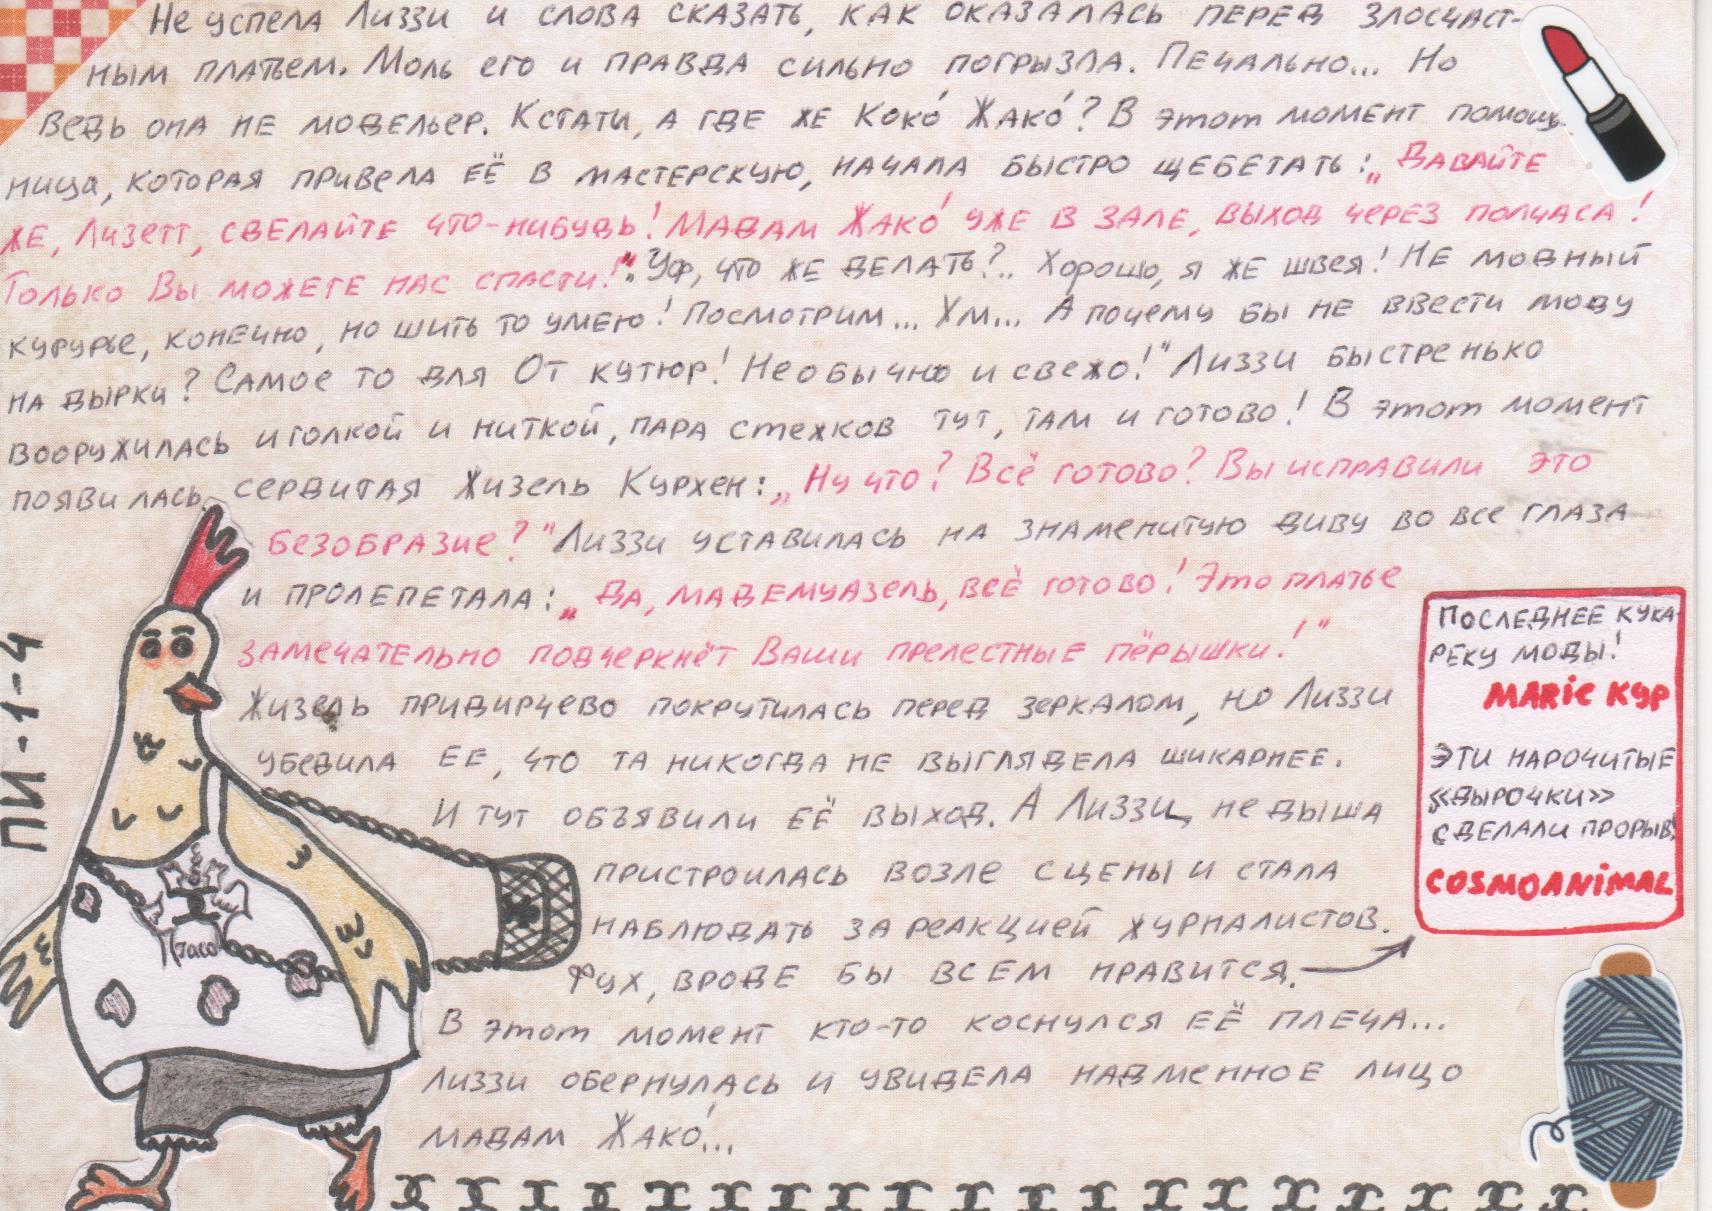 Не успела Лиззи и слова сказать, как оказалась перед злосчаст-
ным платьем. Моль его и правда сильно погрызла. Печально... Но
ведь она не модельер. Кстати, а где же Коко́ Жако́? В этот момент помощ-
ница, которая привела её в мастерскую, начала быстро щебетать: „Давайте
же, Лизетт, сделайте что-нибудь! Мадам Жако́ уже в зале, выход через полчаса!
Только Вы можете нас спасти!" „Уф, что же делать?.. Хорошо, я же швея! Не модный
курурье, конечно, но шить то умею! Посмотрим... Хм... А почему бы не ввести моду
на дырки? Самое то для От кутюр! Необычно и свежо!" Лиззи быстренько
вооружилась иголкой и ниткой, пара стежков тут, там и готово! В этот момент
появилась сердитая Жизель Курхен: „Ну что? Всё готово? Вы исправили это
безобразие?" Лиззи уставилась на знаменитую диву во все глаза
и пролепетала: „Да, мадемуазель, всё готово! Это платье
замечательно подчеркнёт Ваши прелестные пёрышки!"
Жизель придирчево покрутилась перед зеркалом, но Лиззи
убедила ее, что та никогда не выглядела шикарнее.
И тут объявили её выход. А Лиззи, не дыша
пристроилась возле сцены и стала
наблюдать за реакцией журналистов.
Фух, вроде бы всем нравится.
В этот момент кто-то коснулся её плеча...
Лиззи обернулась и увидела надменное лицо
мадам Жако́...
Последнее кука-
реку моды!
Marie Кур
Эти нарочитые
«дырочки»
сделали прорыв!
COSMOANIMAL
ПИ-1-4
Jaco